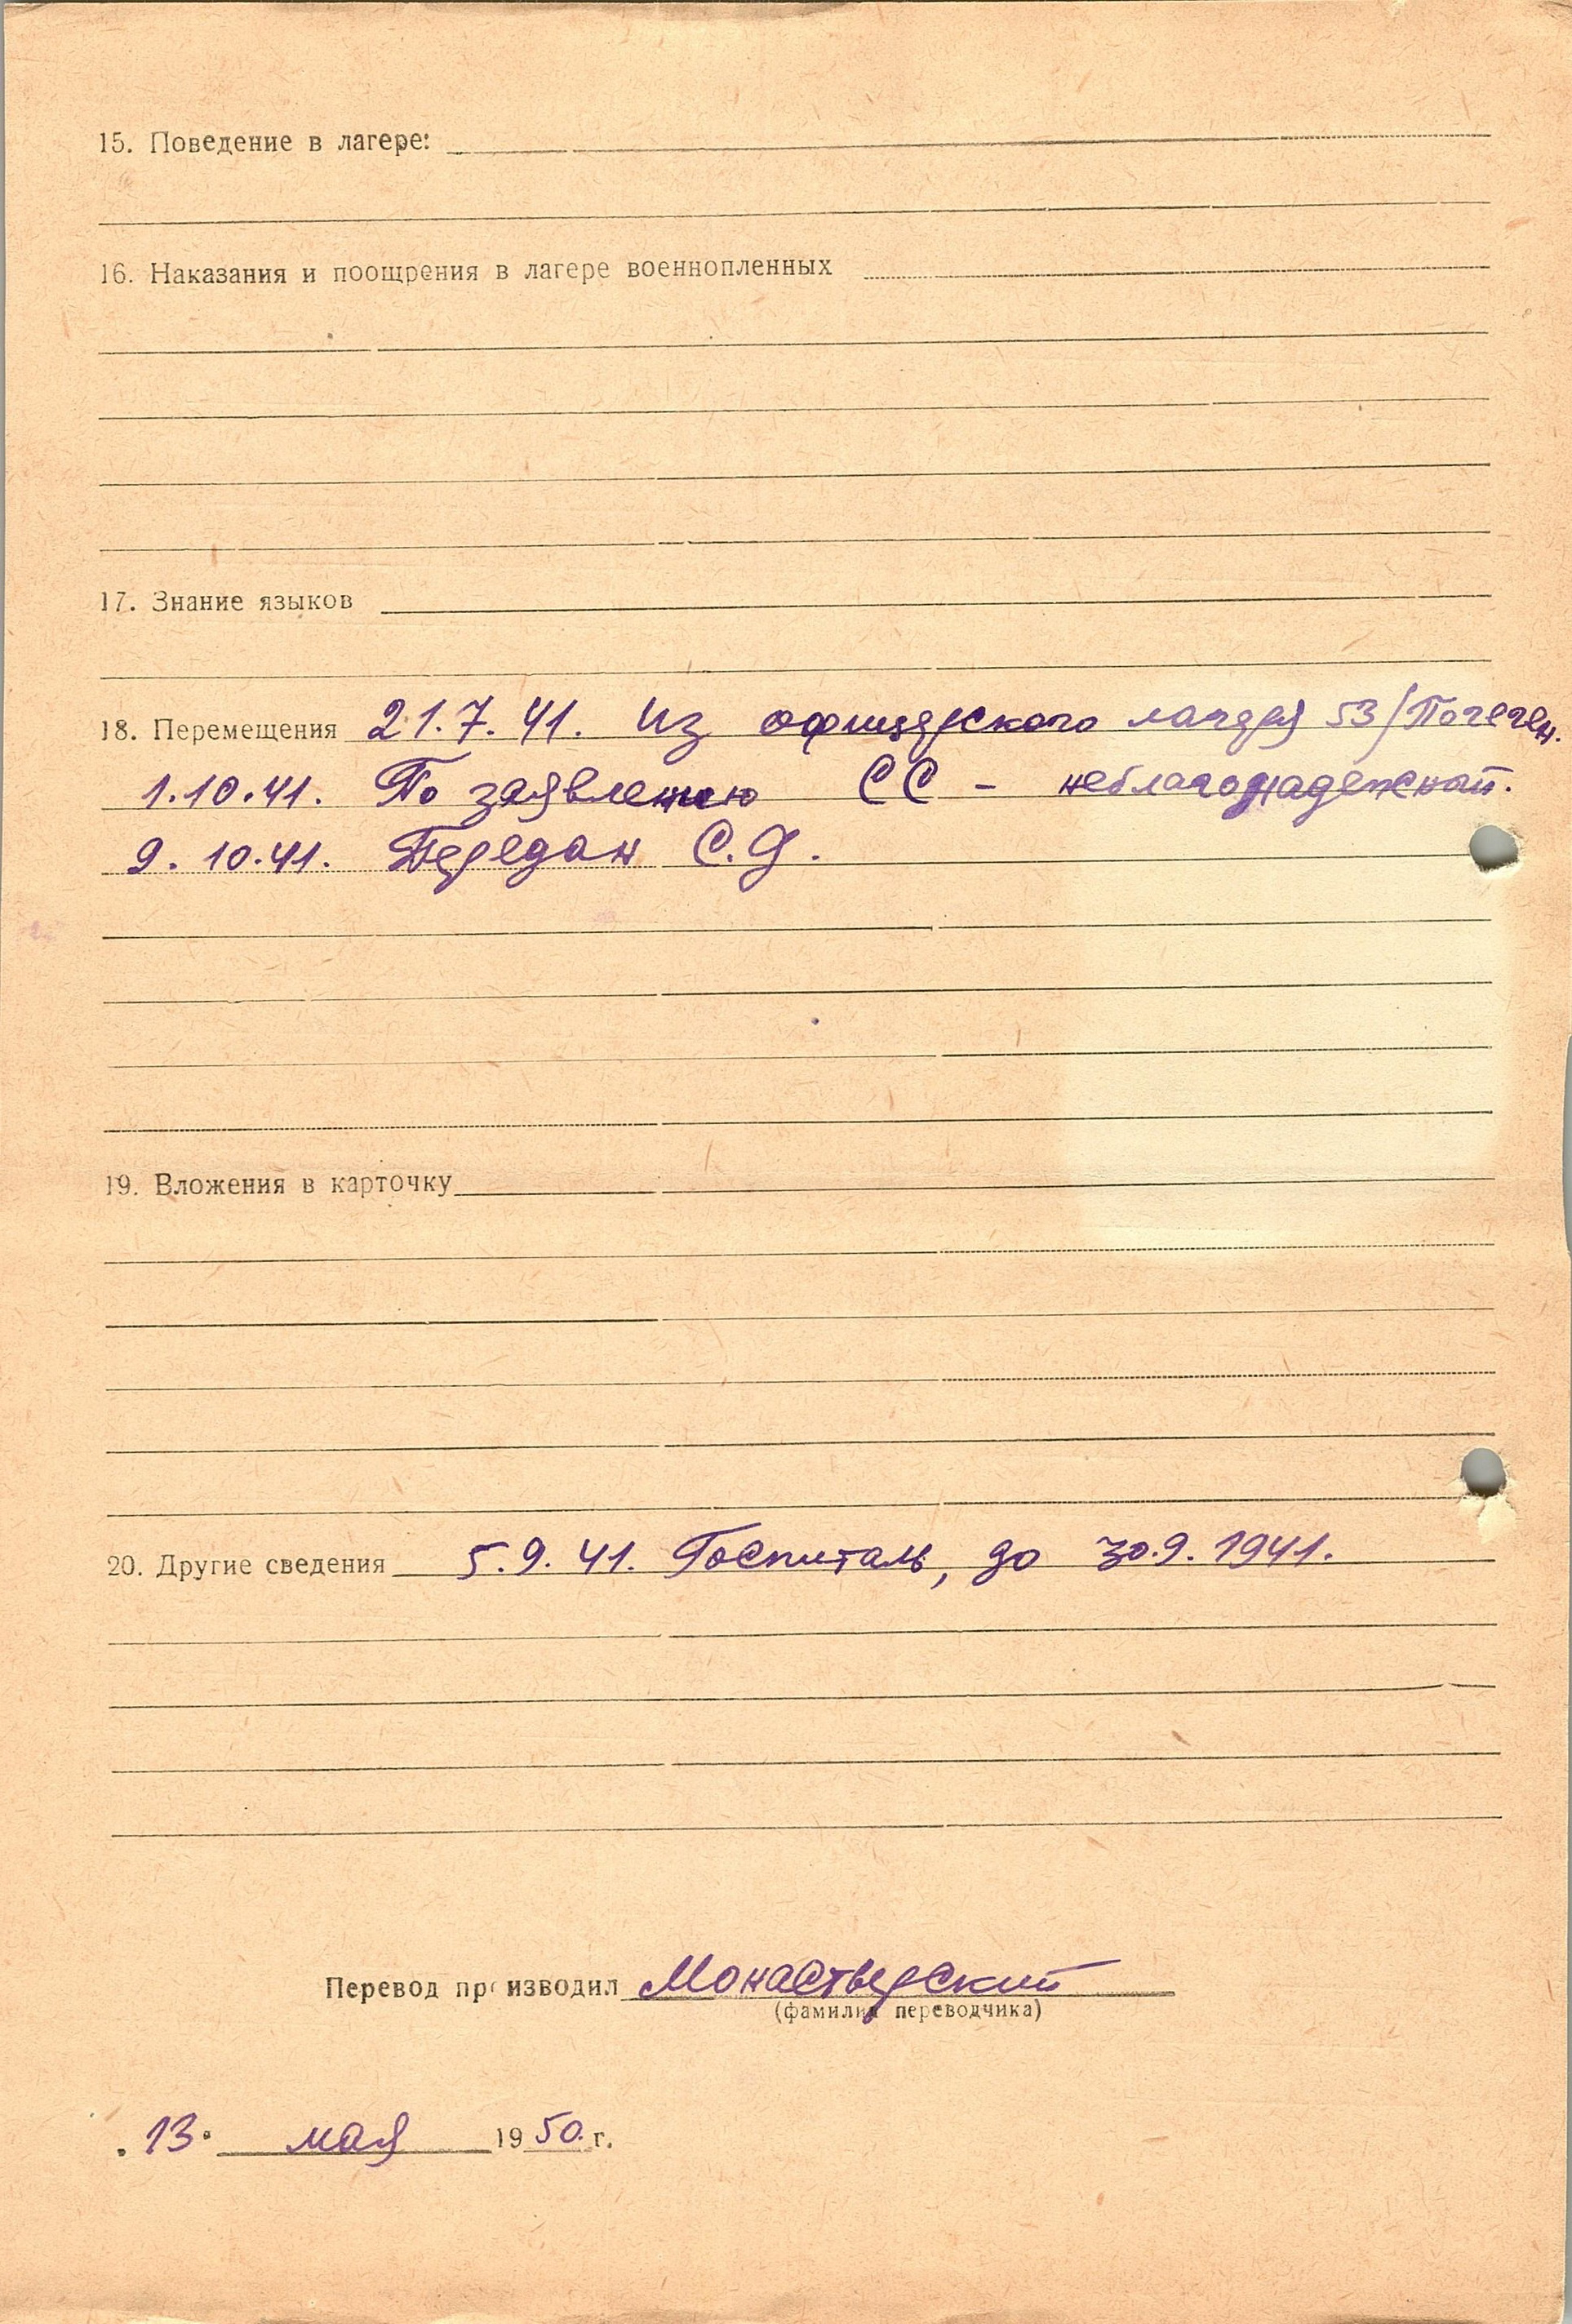 15. Поведение в лагере:
16. Наказания и поощрения в лагере военнопленных
17. Знание языков
18. Перемещения 21.7.41. Из офицерского лагеря 53/Погеген.
1.10.41. По заявлению СС - неблагонадежный.
9.10.41. Передан С.Д.
19. Вложения в карточку
20. Другие сведения 5.9.41. Госпиталь, до 30.9.1941.
Перевод производил Монастверский
(фамилия переводчика)
„13" мая 1950 г.